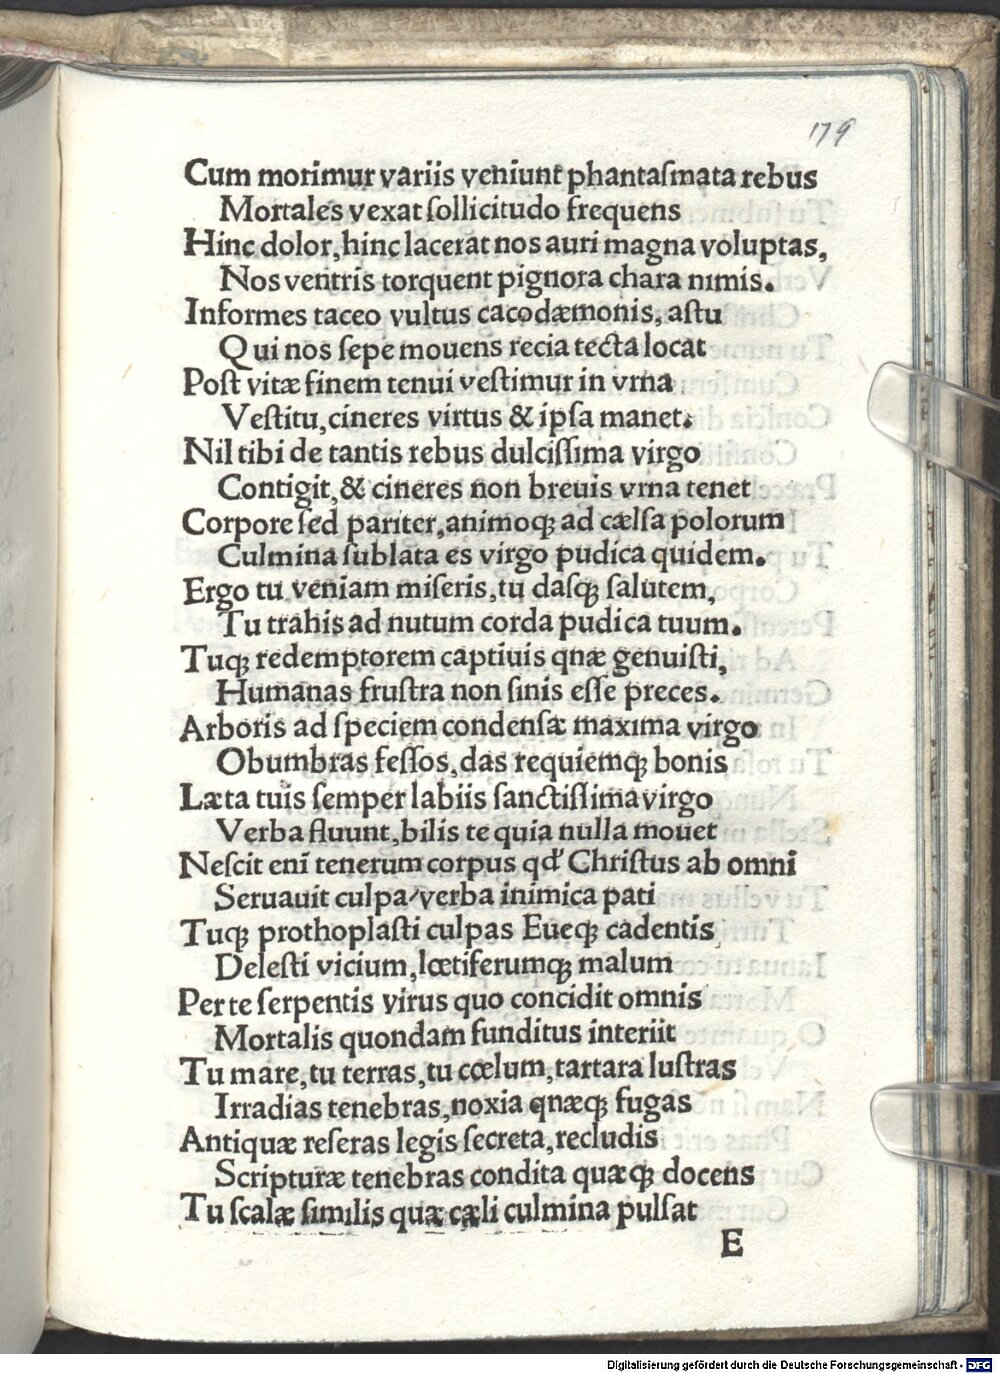 179
Cum morimur variis veniunt phantaſmata rebus
Mortales vexat ſollicitudo frequens
Hinc dolor, hinc lacerat nos auri magna voluptas,
Nos ventris torquent pignora chara nimis.
Informes taceo vultus cacodæmonis, aſtu
Qui nos ſepe mouens recia tecta locat
Poſt vitæ finem tenui veſtimur in vrna
Veſtitu, cineres virtus & ipſa manet.
Nil tibi de tantis rebus dulciſſima virgo
Contigit, & cineres non breuis vrna tenet
Corpore ſed pariter, animoqꝫ ad cælſa polorum
Culmina ſublata es virgo pudica quidem.
Ergo tu veniam miſeris, tu daſqꝫ ſalutem,
Tu trahis ad nutum corda pudica tuum.
Tuqꝫ redemptorem captiuis qnæ genuiſti,
Humanas fruſtra non ſinis eſſe preces.
Arboris ad ſpeciem condenſæ maxima virgo
Obumbras feſſos, das requiemqꝫ bonis
Læta tuis ſemper labiis ſanctiſſima virgo
Verba fluunt, bilis te quia nulla mouet
Neſcit eni tenerum corpus qd' Chriſtus ab omni
Seruauit culpa/verba inimica pati
Tuqꝫ prothoplaſti culpas Eueqꝫ cadentis
Deleſti vicium, lœtiferumqꝫ malum
Per te ſerpentis virus quo concidit omnis
Mortalis quondam funditus interiit
Tu mare, tu terras, tu cœlum, tartara luſtras
Irradias tenebras, noxia qnæqꝫ fugas
Antiquæ reſeras legis ſecreta, recludis
Scripturæ tenebras condita quæqꝫ docens
Tu ſcalæ ſimilis quæ cæli culmina pulſat
E
Digitalisierung gefördert durch die Deutsche Forschungsgemeinschaft - DFG